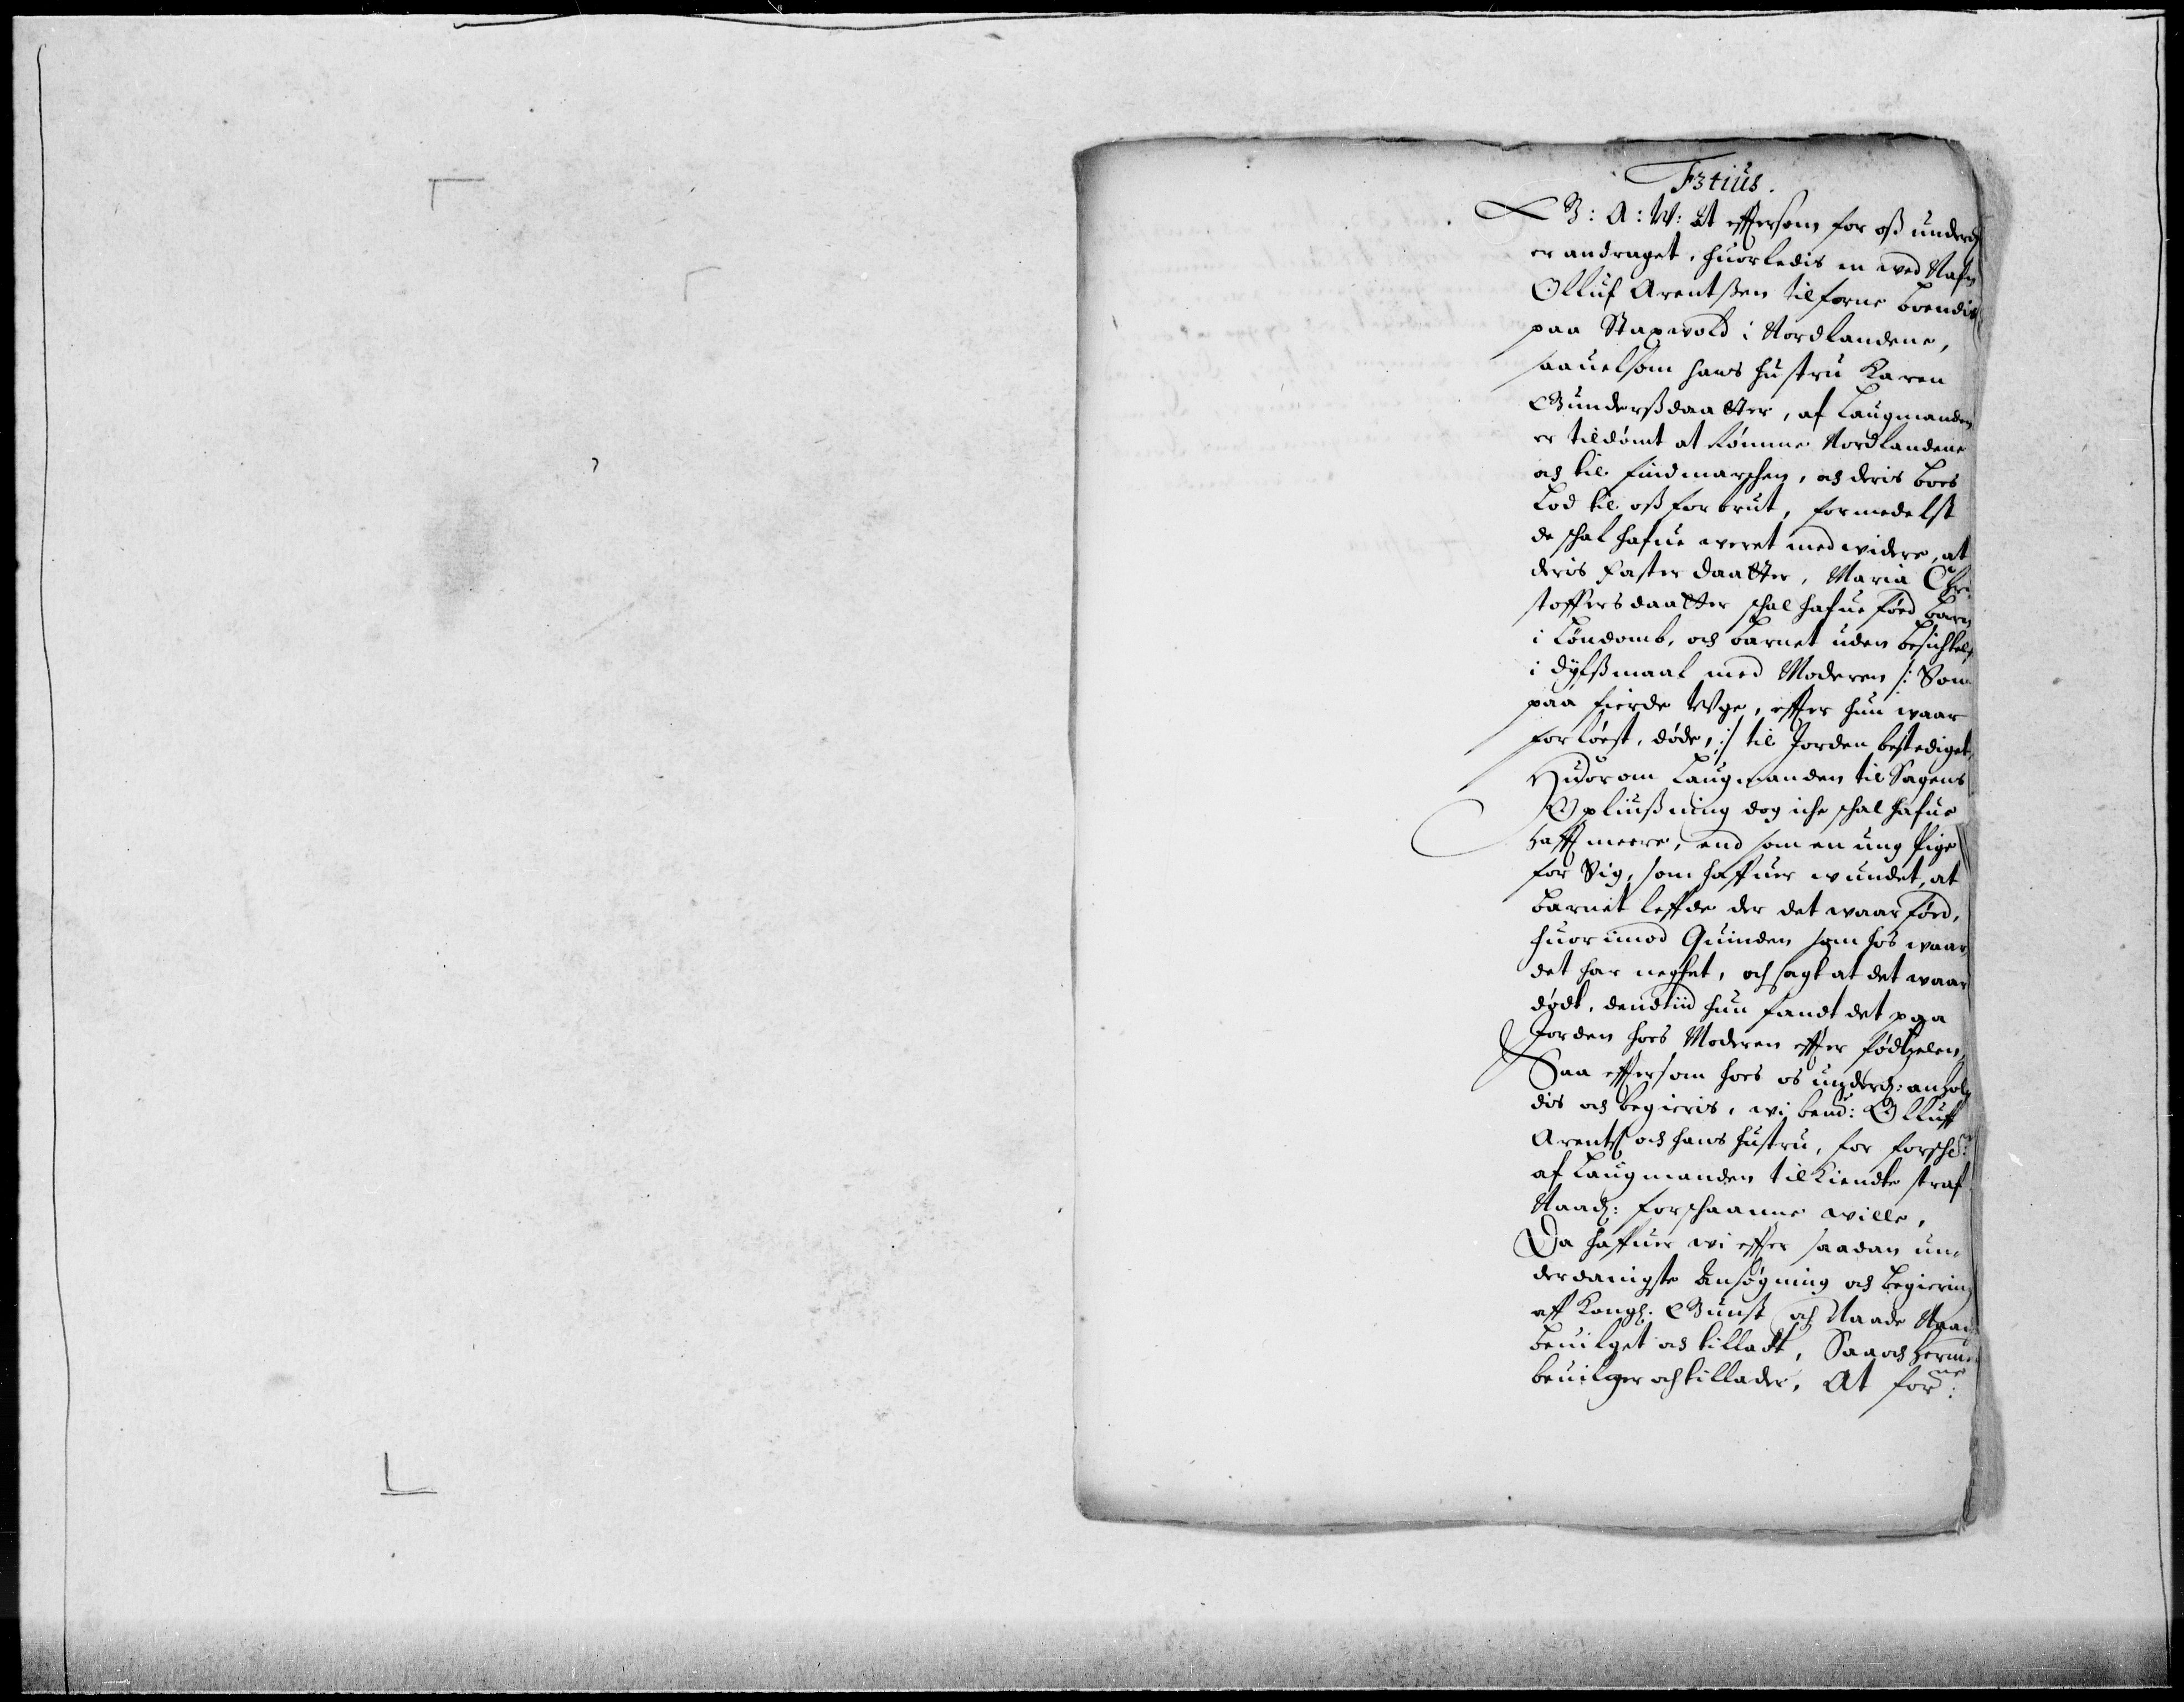 F3tius.
G: A: W: At effersom for oß underd
er andraget, huorledis en ved Nafn
Olluf Arentßen tilforne boendis
paa Stapvold i Nordlandene,
saauelsom hans hustru Karen
Gunderßdaatter, af Laugmanden
er tildömt at römme Nordlandene
och til Findmarchen, och deris boes
Lod til oß forbrut, formedelst
de schal hafue veret medvidere, at
deris Faster daatter, Maria Chri¬
stoffersdaatter schal hafue föed barn
i Löndomb, och barnet uden besichtelse
i dylßmaal med Moderen /: Som
paa fierde Uge, effter hun waar
forlöest, döde, :/ til Jorden bestediget,
Huorom Laugmanden til Sagens
Opliußning dog iche schal hafue
hafft meere, end som en ung Pige
for Sig, som haffuer wundet, at
barnet leffde der det waar föed,
huorimod Quinden som hos waar
det har neghet, och sagt at det waar
dödt, dendtiid hun fandt det paa
Jorden hoes Moderen effter födtzelen,
Saa effersom hoes os underd: anhol¬
dis och begieris, wi bemd: Olluff
Arentß och hans hustru, for forschd:
af Laugmanden tilkiendte straf
Naad: forschaanne wille,
Da haffuer wi effter saadan un¬
derdanigste Ansögning och begiering
aff Kongl. Gunst och Naade Naad
beuilget och tilladt, Saa och hermed
beuilger och tillader, At forne: